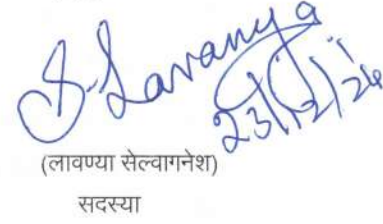 S. Lavanya
23/12/24
(लावण्या सेल्वागनेश)
सदस्या